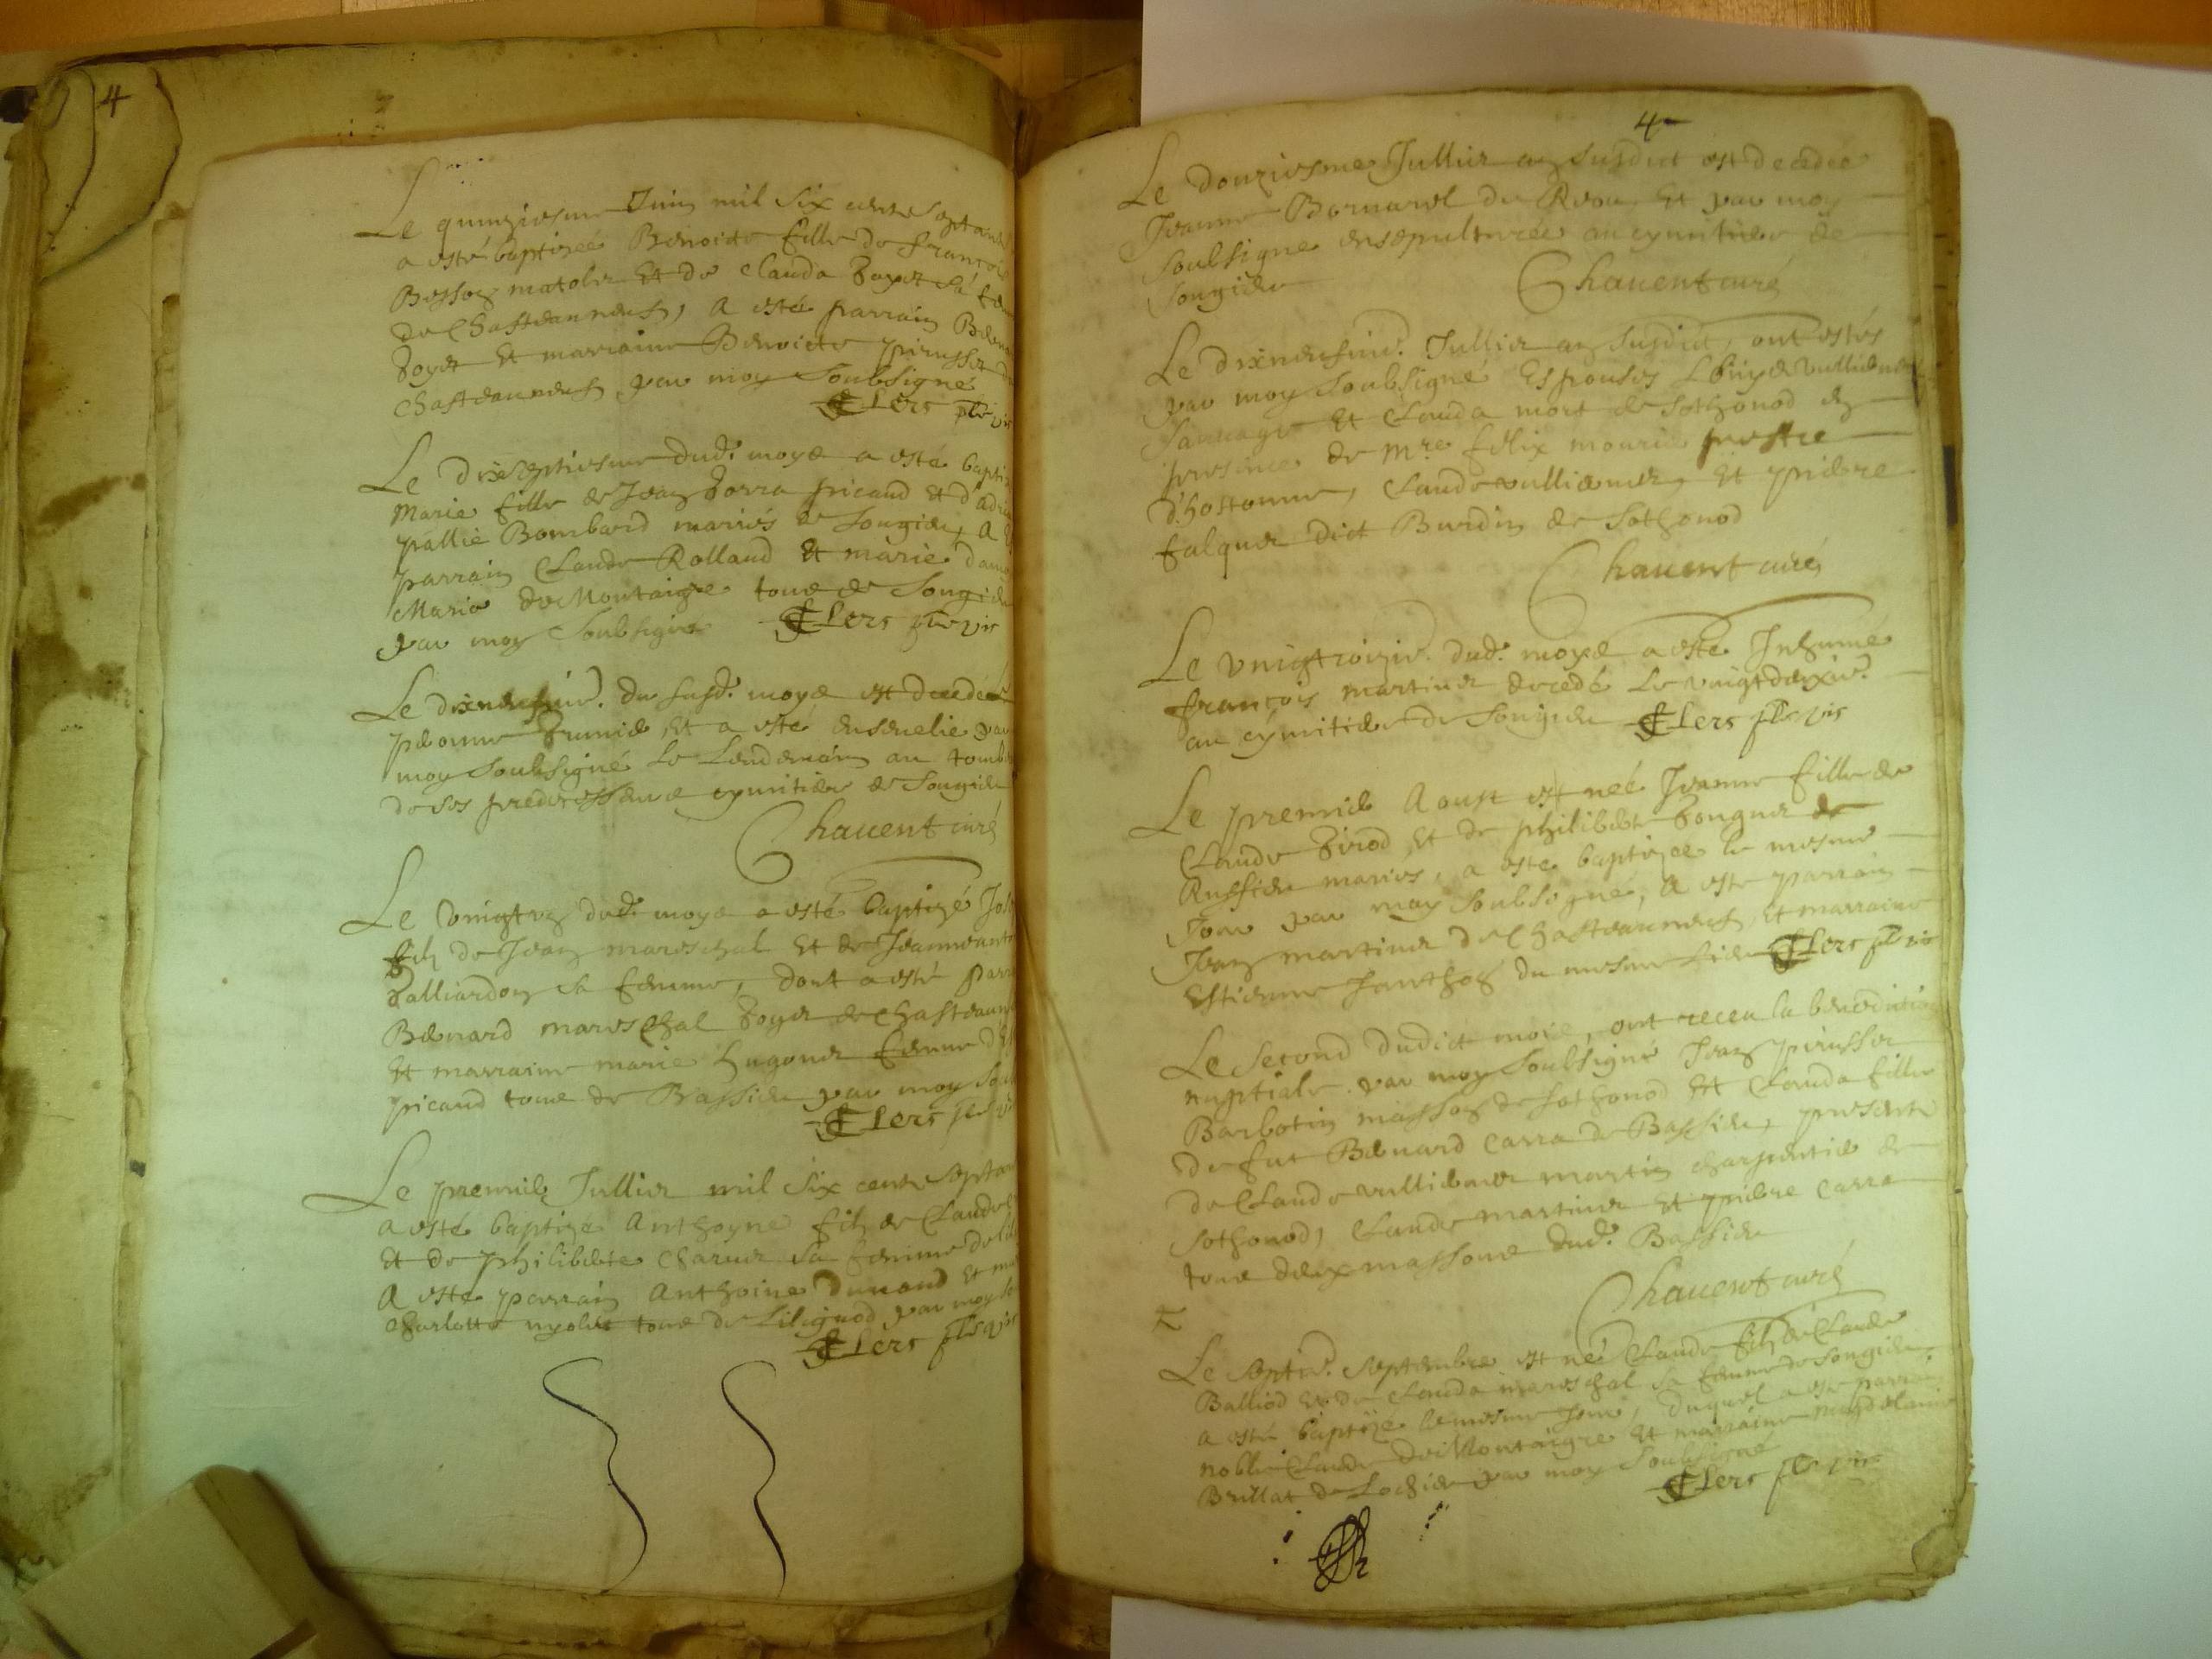 4
Le quinziesme Juin mil six cents septan
a esté baptizeé Benoite fille de françois
Besson matolin Et de Clauda Goyet sa fem
de Chasteauneuf, A esté parrain Benoi
Goyet Et marraine Benoicte pirusset de
Chasteauneuf par moy soubsigné
Clerc pbr vic
Le dixseptiesme dud. moys a esté bapti
Marie fille de Jean Gorra picaud Et d'Adri
pallie Bombard mariés de Songieu, A es
parrain Claude Rolland Et marie dam
Marie de Montaigre tous de Songieu
par moy soubsigné Clerc pbr vic
Le dixneufuie. du susd. moys est decedée
peronne Grumie, Et a esté enseuelie par
moy soubsigné le Lendemain au tomb
de ses predecesseurs cymitiere de Songieu
Chauent curé
Le vingtun dud. moys a esté baptizé Jos
filz de Jean mareschal Et de Jeanneanto
Galliardon sa femme, dont a esté parr
Bernard mareschal Goyet de Chasteaun
Et marraine marie hugonet femme d'
picaud tous de Bassieu par moy sou
Clerc pbr vi
Le premier Jullier mil six cents septan
a esté baptizé Anthoyne filz de Claude
Et de philiberte Charuet sa femme de Lil
A esté parrain Anthoine Dunand Et ma
Charlotte myolet tous de Lilignod par moy so
Clerc pbr vic
4
Le douziesme Jullier an susdict est decedee
Jeanne Bornarel du Reou Et par moy
soubsigne ensepulturée au cymitiere de
Songieu
Chauent curé
Le dixneufuie. Jullier an susdict, ont estés
par moy soubsigné Espousés Louys vulliemet
sauuage Et Clauda mort de Sothonod En
presence de Mre félix mourie prestre
d'hostonne, Claude vulliemer, Et pierre
falquet dict Burdin de Sothonod
Chauent curé
Le vingtroizie. dud. moys a esté Inhumé
françois martinet decedé Le vingtdeuxie.
au cymitiere de Songieu Clerc pbr vic
Le premier Aoust est neé Jeanne fille de
Claude Girod, Et de philiberte Gonguet de
Ruffieu mariés, a esté baptizee le mesme
Jour par moy soubsigné, A esté parrain
Jean martinet de Chasteauneuf, Et marraine
Estienne Janthon du mesme lieu Clerc pbr vic
Le second dudict mois, ont receu la benediction
nuptiale par moy soubsigné Jean pirusset
Barbotin masson de Sothonod Et Clauda fille
de fut Bernard Carra de Bassieu, presents
de Claude vulliemer martin charpentie de
Sothonod, Claude martinet Et pierre Carra
tous deux massons dud. Bassieu
Chauent curé
Le septie. septembre est né Claude filz de Claude
Balliod Et de Clauda mareschal sa femme de Songieu,
a esté baptizé le mesme Jour, duquel a esté parrain
noble Claude de Montaigre Et marraine magdelaine
Brillat de Lochieu par moy soubsigné
Clerc pbr vic